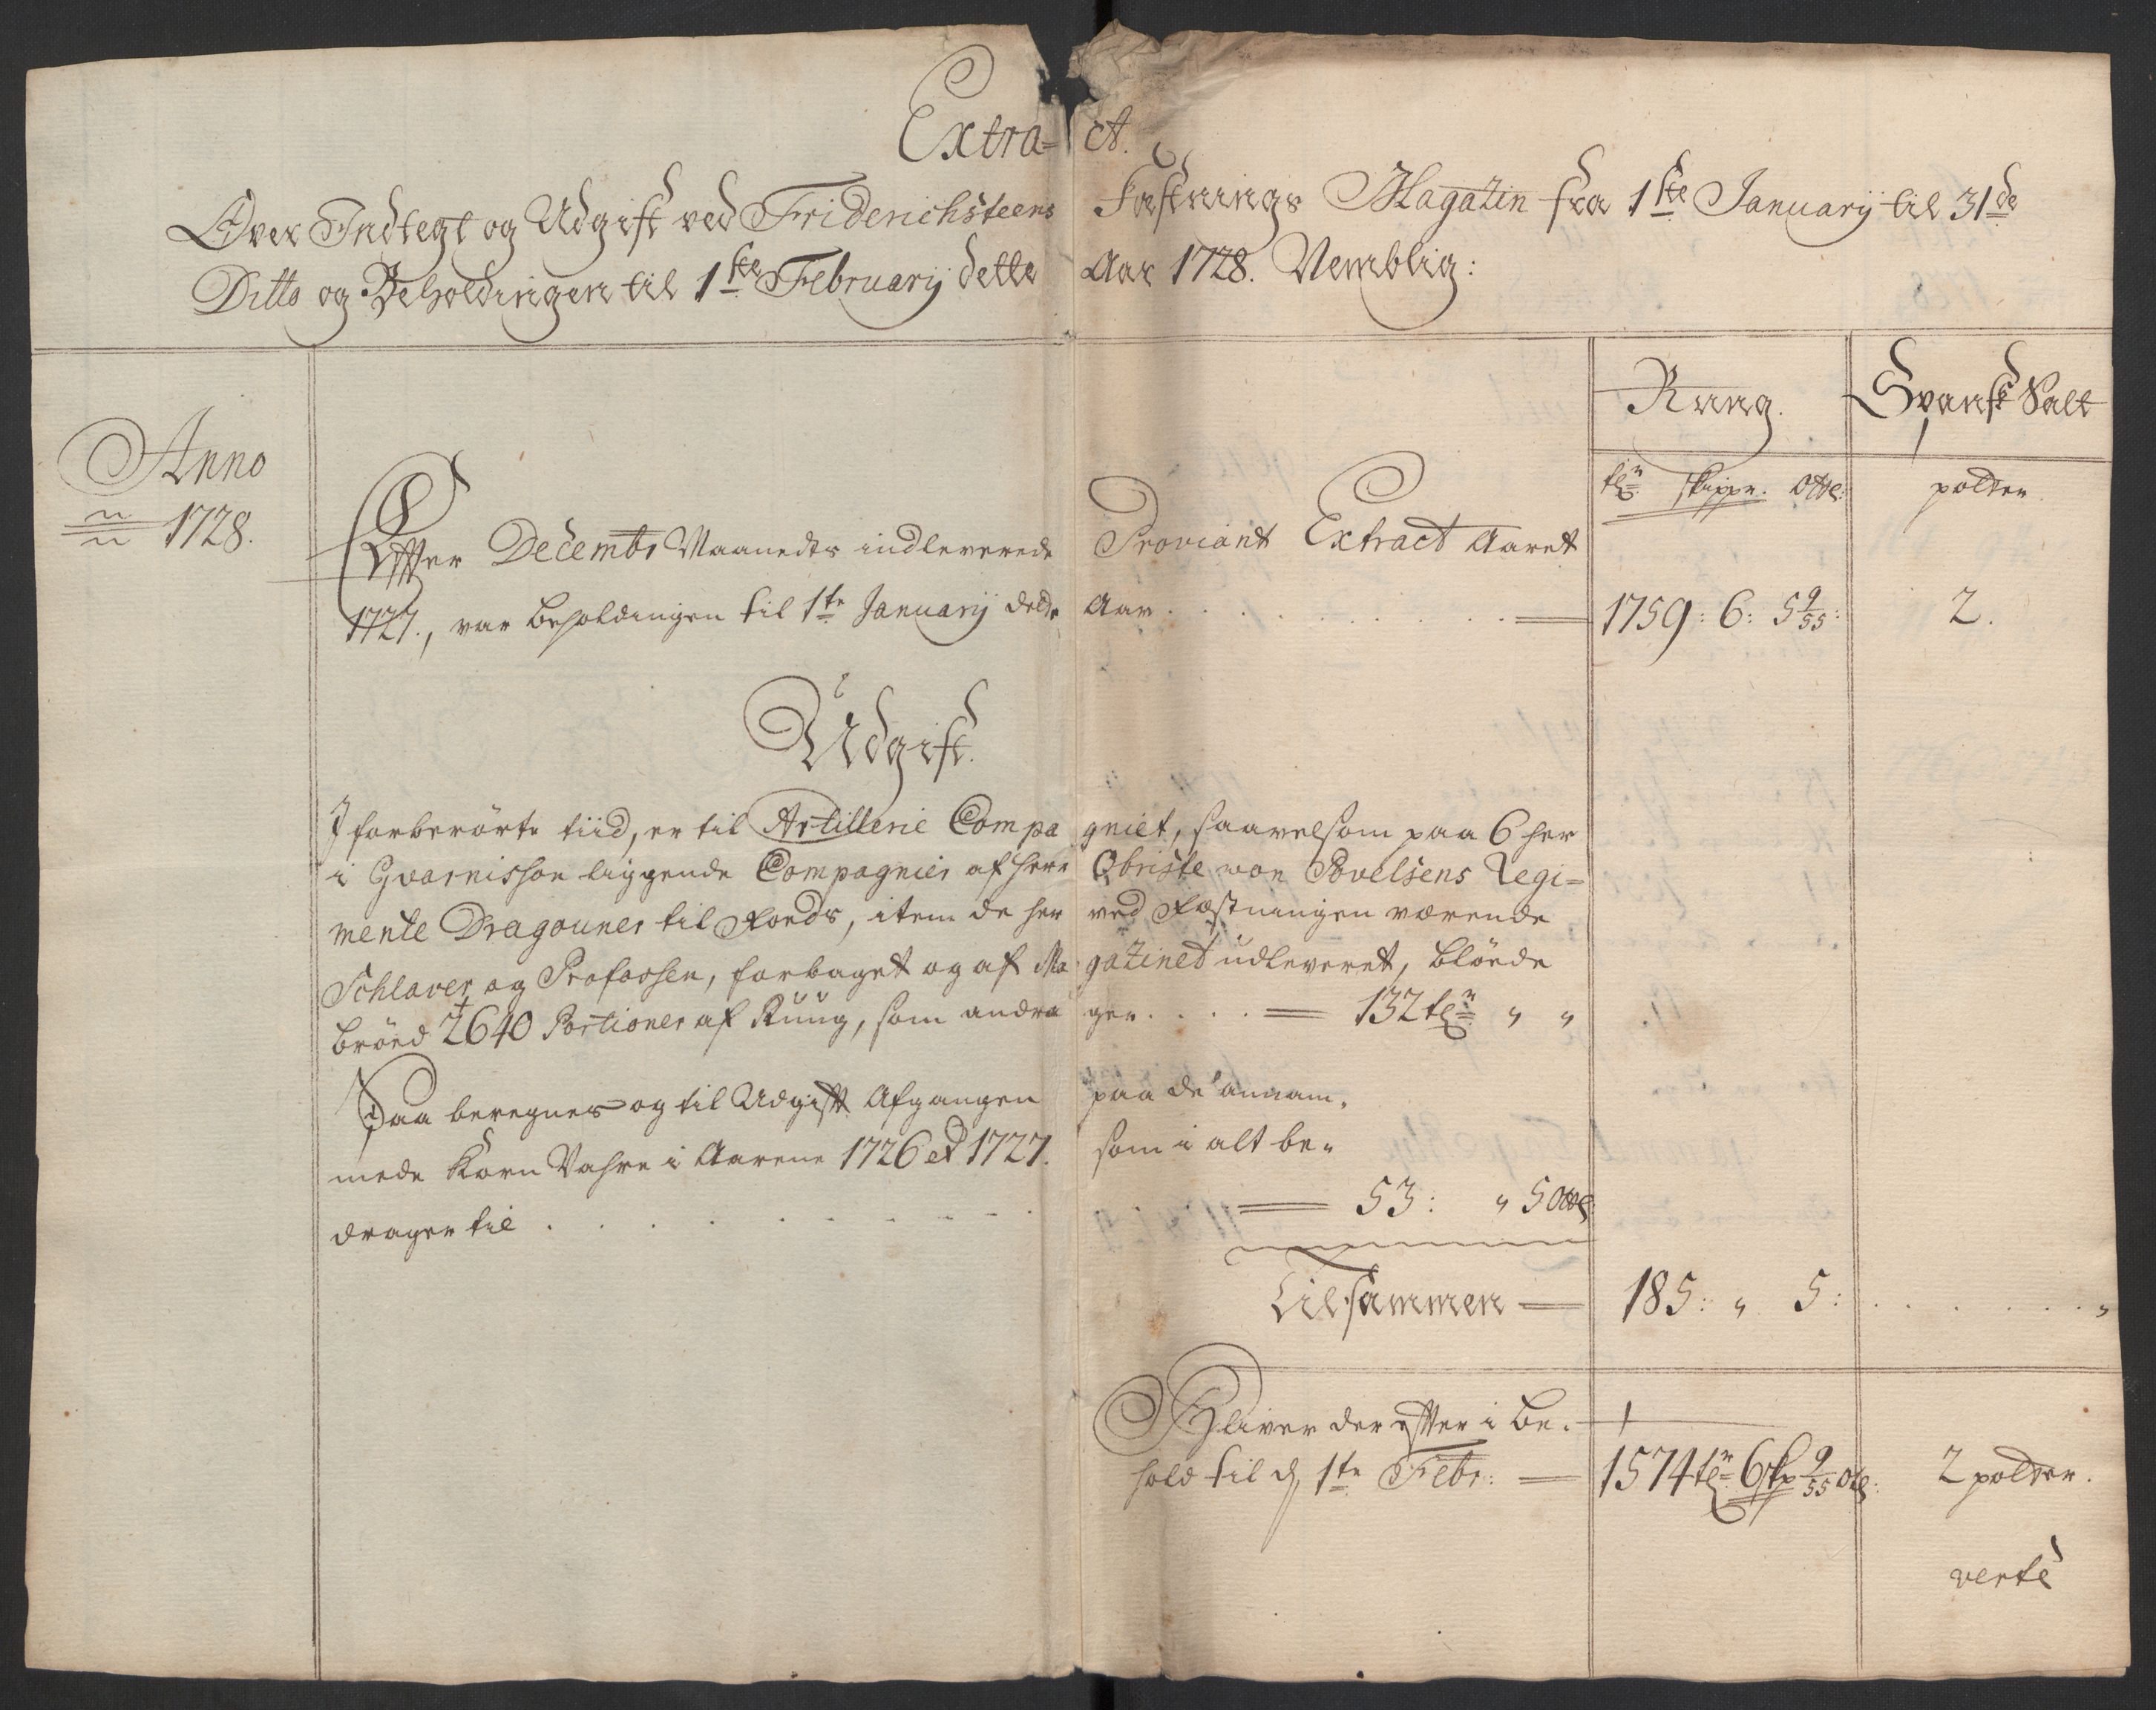 Extra= ct.
Over Indtegt og Udgift ved Friderichsteens Fæstnings Magazin fra 1ste Januarij til 31de
Ditto og Beholdingen til 1ste Februarij dette Aar 1728. Nemblig:
Rung. Spansk Salt
Anno
1728.
tr. skippr. Ottl: polder.
Effter Decembr Maanedts indleverede Proviant Extract Aaret
1727., var beholdingen til 1te Januarij dette Aar . . . . . . . . 1759: 6: 5 9/55: 2.
Udgift.
I forberörte tiid, er til Artillerie Compa gniet, saavelsom paa 6 her
i Gvarnisson liggende Compagnier af Herr Obriste von Povelsens Regi=
mente Dragouner til Foeds, item de her ved Fæstningen værende
Schlaver og Profossen, forbaget og af Ma gazinet udleveret, blöede
bröed 2640 Portioner af Rung, som andra ger . . . . 132 tr " "
Saa beregnes og til Udgifft Afgangen paa de annam,
mede Korn Vahre i Aarene 1726 et 1727. som i alt be"
drager til . . . . . . . . . . 53: " 5 Ottl
Tilsammen 185: " 5: . . . . . . "
Bliver der effter i be"
hold til d. 1te Febr: 1574 tr 6 skp 9/55 Otl: 2 polder.
verte